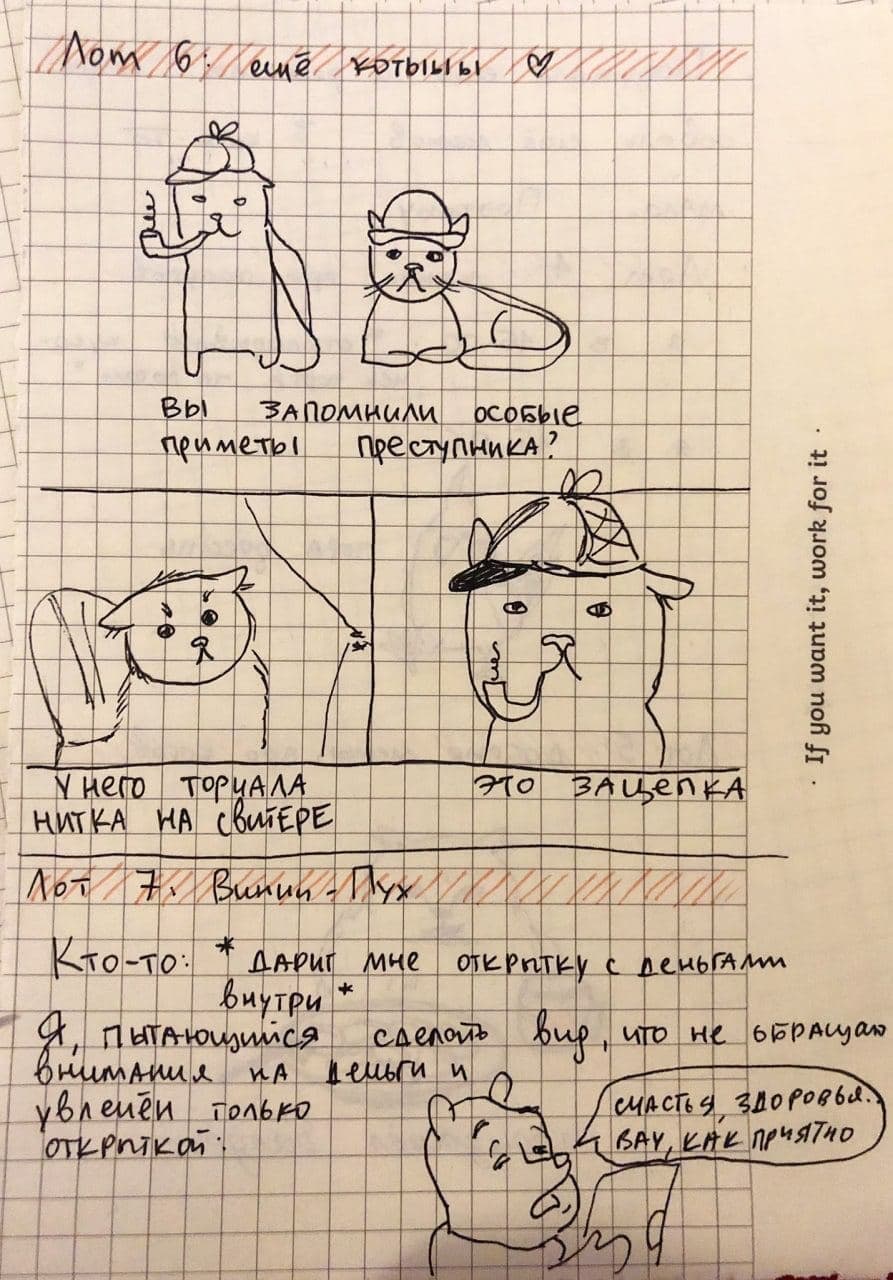 Лот 6: ещё котыыы ♡
ВЫ ЗАПОМНИЛИ ОСОБЫЕ
ПРИМЕТЫ ПРЕСТУПНИКА?
У НЕГО ТОРЧАЛА
НИТКА НА СВИТЕРЕ
ЭТО ЗАЦЕПКА
Лот 7. Винни-Пух
Кто-то: * ДАРИТ МНЕ ОТКРЫТКУ С ДЕНЬГАМИ
ВНУТРИ *
Я, ПЫТАЮЩИЙСЯ СДЕЛАТЬ ВИД, ЧТО НЕ ОБРАЩАЮ
ВНИМАНИЯ НА ДЕНЬГИ И
УВЛЕЧЁН ТОЛЬКО
ОТКРЫТКОЙ:
СЧАСТЬЯ, ЗДОРОВЬЯ..
ВАУ, КАК ПРИЯТНО
· If you want it, work for it ·